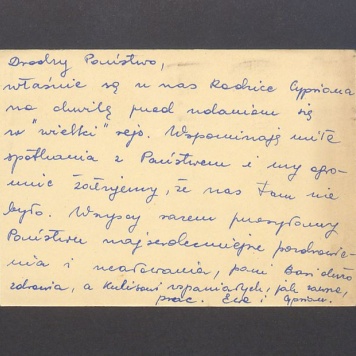 Drodzy Państwo,
właśnie są u nas Rodzice Cypriana
na chwilę przed udaniem się
w "wielki" rejs. Wspominają miłe
spotkania z Państwem i my ogro-
mnie żałujemy, że nas tam nie
było. Wszyscy razem przesyłamy
Państwu najserdeczniejsze pozdrowie-
nia i ucałowania, pani Basi dużo
zdrowia, a Kulisowi wspaniałych, jak zawsze,
prac. Ewa i Cyprian.